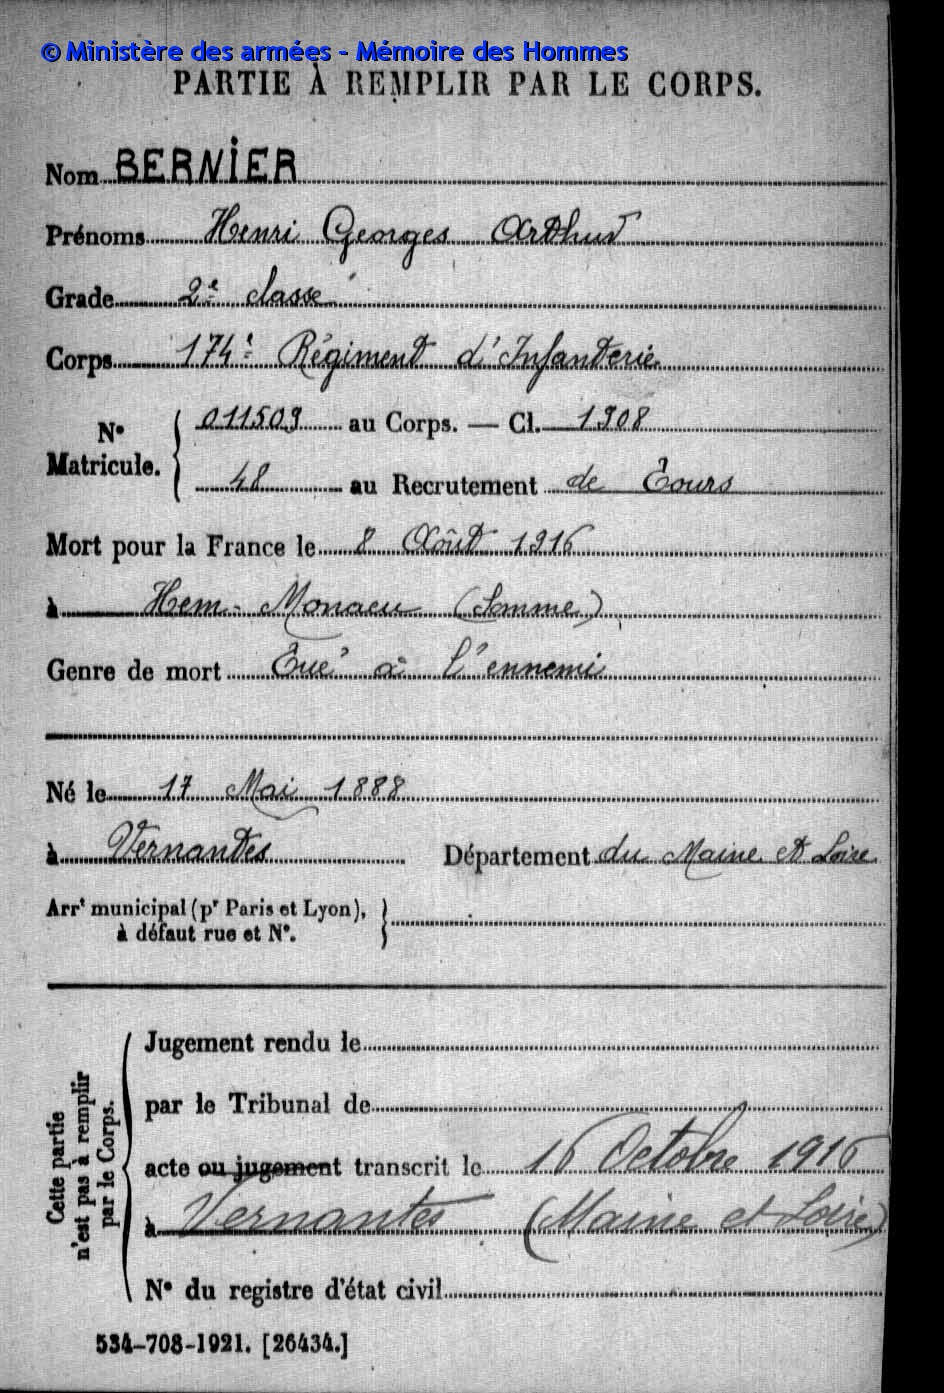 © Ministère des armées - Mémoire des Hommes
PARTIE À REMPLIR PAR LE CORPS.
Nom BERNIER
Prénoms Henri Georges Arthur
Grade 2e classe
Corps 174e Régiment d'Infanterie
N° Matricule. { 011509 au Corps. — Cl. 1908
48 au Recrutement de Tours
Mort pour la France le 8 Août 1916
à Hem-Monacu (Somme)
Genre de mort Tué à l'ennemi
Né le 17 Mai 1888
à Vernantes Département du Maine et Loire
Arrt municipal (pr Paris et Lyon), }
à défaut rue et N°.
Cette partie n'est pas à remplir par le Corps. {
Jugement rendu le
par le Tribunal de
acte ou jugement transcrit le 16 Octobre 1916
à Vernantes (Maine et Loire)
N° du registre d'état civil
534-708-1921. [26434.]